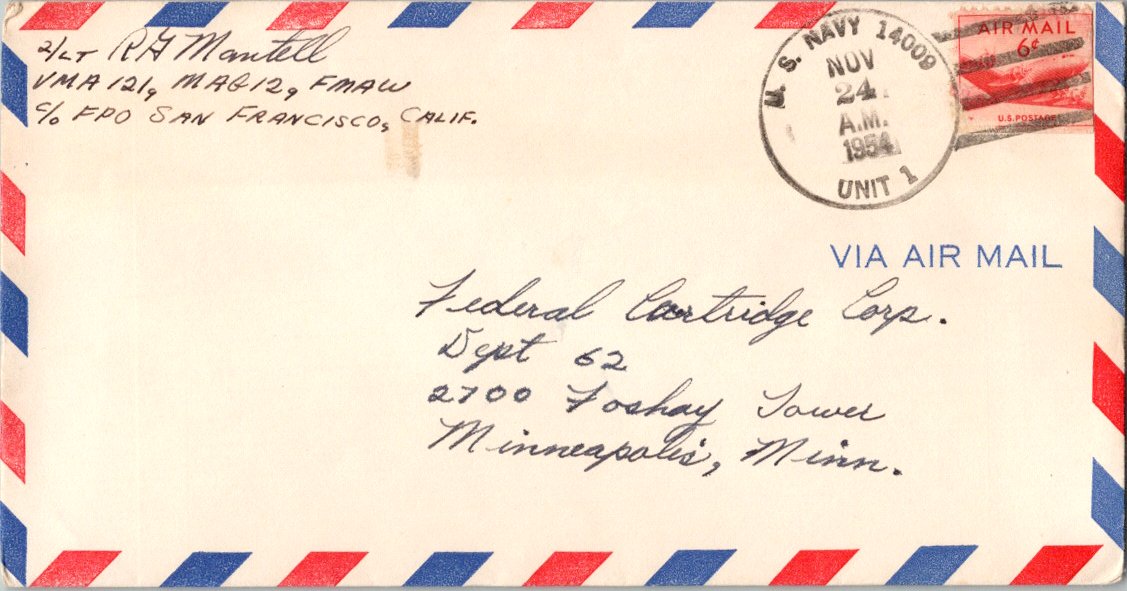 2/LT R G Mantell
VMA 121, MAG 12, FMAW
c/o FPO SAN FRANCISCO, CALIF.
U. S. NAVY 14009
NOV
24
A.M.
1954
UNIT 1
AIR MAIL
6¢
U.S. POSTAGE
VIA AIR MAIL
Federal Cartridge Corp.
Dept 62
2700 Foshay Tower
Minneapolis, Minn.